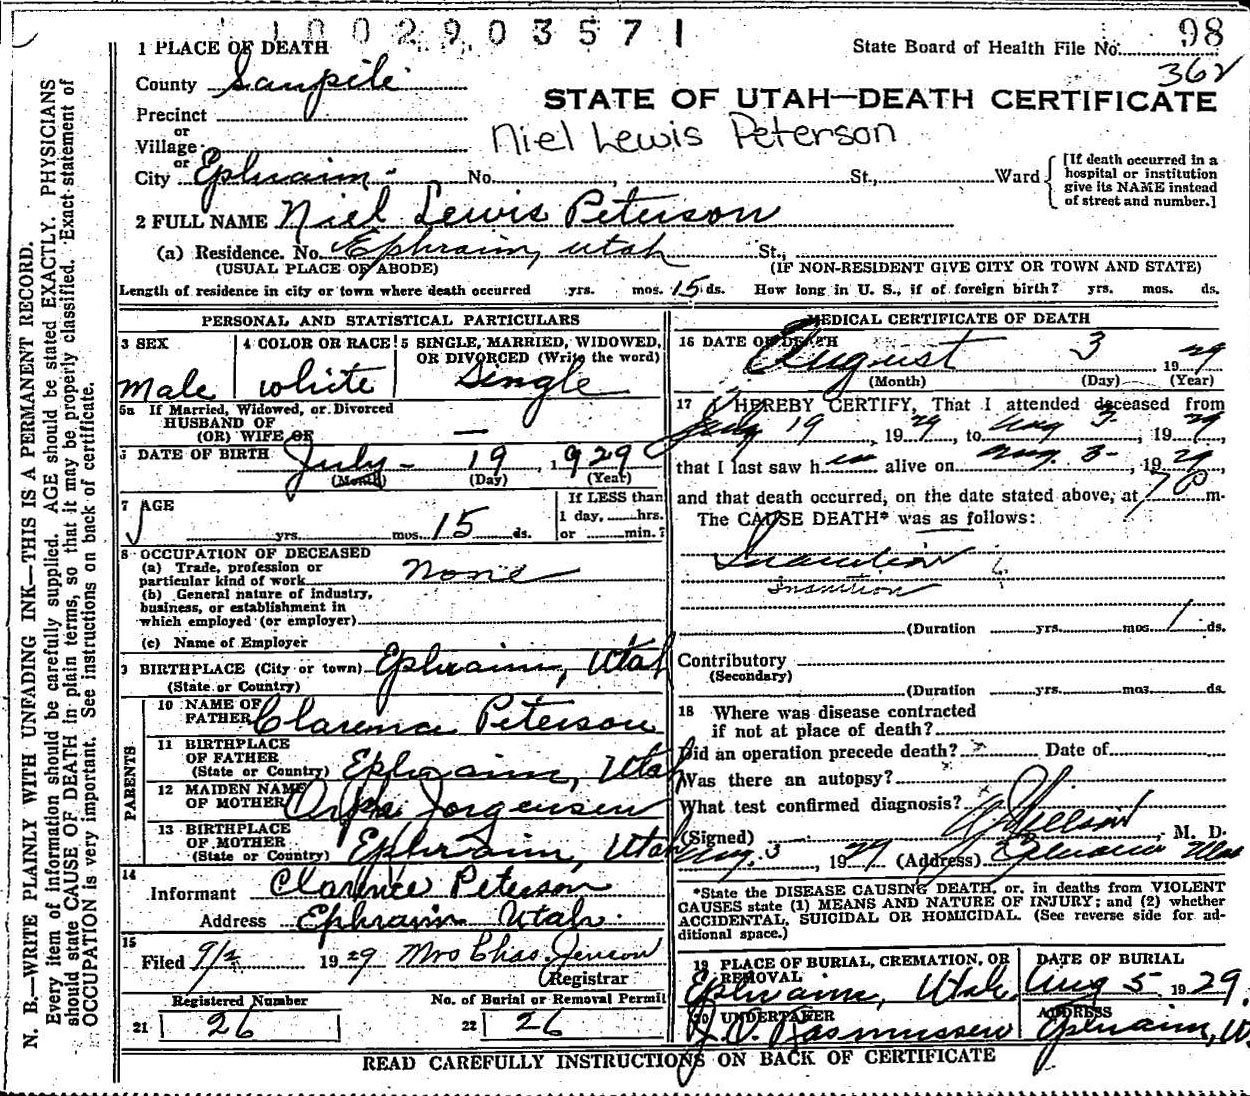 1002903571
1 PLACE OF DEATH
State Board of Health File No. 98
362
County Sanpete
STATE OF UTAH—DEATH CERTIFICATE
Precinct
or
Village
Niel Lewis Peterson
or
City Ephraim No. , St., Ward
[If death occurred in a hospital or institution give its NAME instead of street and number.]
2 FULL NAME Niel Lewis Peterson
(a) Residence. No. Ephraim, Utah St.,
(USUAL PLACE OF ABODE) (IF NON-RESIDENT GIVE CITY OR TOWN AND STATE)
Length of residence in city or town where death occurred yrs. mos. 15 ds. How long in U. S., if of foreign birth? yrs. mos. ds.
PERSONAL AND STATISTICAL PARTICULARS
3 SEX 4 COLOR OR RACE 5 SINGLE, MARRIED, WIDOWED,
OR DIVORCED (Write the word)
Male white Single
5a If Married, Widowed, or Divorced
HUSBAND OF
(OR) WIFE OF —
DATE OF BIRTH July - 19, 1929
(Month) (Day) (Year)
7 AGE
If LESS than
1 day, hrs.
yrs. mos. 15 ds. or min.?
8 OCCUPATION OF DECEASED
(a) Trade, profession or
particular kind of work None
(b) General nature of industry,
business, or establishment in
which employed (or employer)
(c) Name of Employer
9 BIRTHPLACE (City or town) Ephraim, Utah
(State or Country)
PARENTS
10 NAME OF
FATHER Clarence Peterson
11 BIRTHPLACE
OF FATHER
(State or Country) Ephraim, Utah
12 MAIDEN NAME
OF MOTHER Orpha Jorgensen
13 BIRTHPLACE
OF MOTHER
(State or Country) Ephraim, Utah
14
Informant Clarence Peterson
Address Ephraim Utah
15
Filed 9/2 1929 Mrs Chas. Jenson
Registrar
Registered Number No. of Burial or Removal Permit
21 26 22 26
MEDICAL CERTIFICATE OF DEATH
16 DATE OF DEATH
August 3 1929
(Month) (Day) (Year)
17 I HEREBY CERTIFY, That I attended deceased from
July 19, 1929, to Aug 3, 1929,
that I last saw him alive on Aug. 3-, 1929,
and that death occurred, on the date stated above, at 7 P m.
The CAUSE DEATH* was as follows:
Inanition
Inanition
(Duration yrs. mos. 1 ds.
Contributory
(Secondary)
(Duration yrs. mos. ds.
18 Where was disease contracted
if not at place of death?
Did an operation precede death? Date of
Was there an autopsy?
What test confirmed diagnosis?
(Signed) , M. D.
Aug. 3, 1929 (Address) Ephraim Utah
*State the DISEASE CAUSING DEATH, or, in deaths from VIOLENT
CAUSES state (1) MEANS AND NATURE OF INJURY; and (2) whether
ACCIDENTAL, SUICIDAL OR HOMICIDAL. (See reverse side for additional space.)
19 PLACE OF BURIAL, CREMATION, OR REMOVAL DATE OF BURIAL
Ephraim, Utah. Aug 5 1929.
20 UNDERTAKER ADDRESS
Rasmussen Ephraim, U
READ CAREFULLY INSTRUCTIONS ON BACK OF CERTIFICATE
N. B.—WRITE PLAINLY WITH UNFADING INK—THIS IS A PERMANENT RECORD.
Every item of information should be carefully supplied. AGE should be stated EXACTLY. PHYSICIANS
should state CAUSE OF DEATH in plain terms, so that it may be properly classified. Exact statement of
OCCUPATION is very important. See instructions on back of certificate.